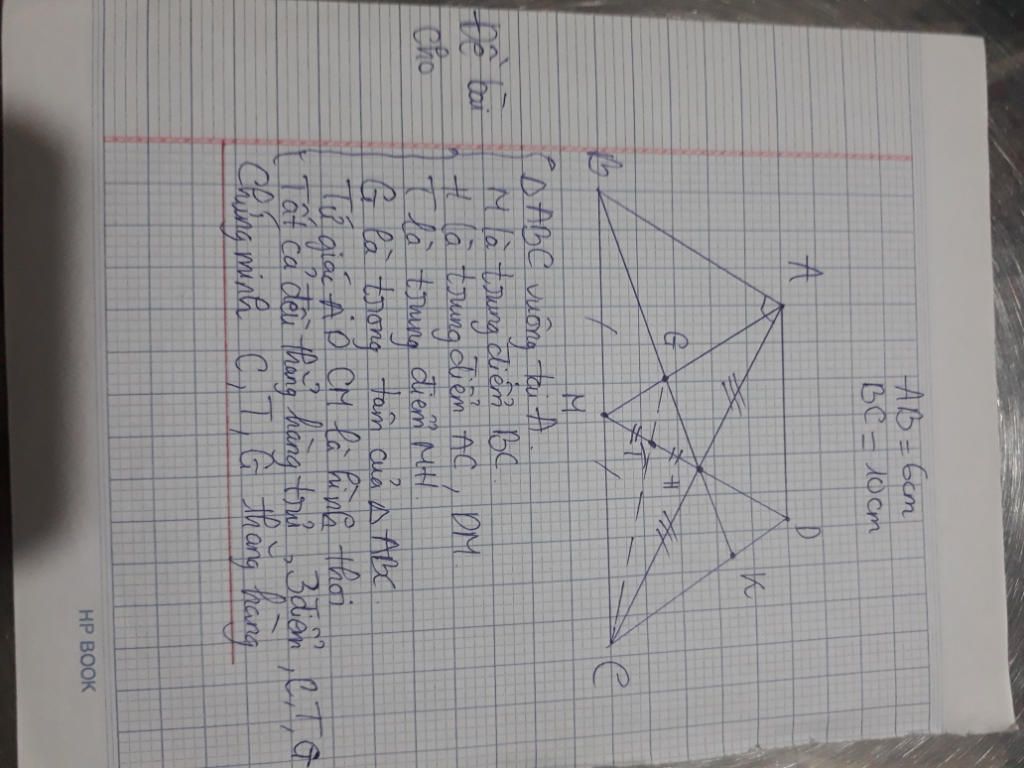 AB = 6cm
BC = 10cm
A
D
K
G
H
T
B
M
C
Đề bài
Cho
ΔABC vuông tại A.
M là trung điểm BC.
H là trung điểm AC, DM.
T là trung điểm MH.
G là trọng tâm của ΔABC.
Tứ giác ADCM là hình thoi
Tất cả đều thẳng hàng trừ 3 điểm, C, T, G
Chứng minh C, T, G thẳng hàng
HP BOOK